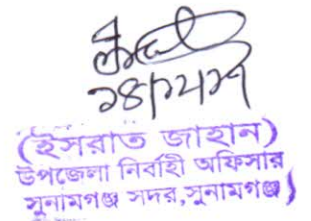 (ইসরাত জাহান)
উপজেলা নির্বাহী অফিসার
সুনামগঞ্জ সদর,সুনামগঞ্জ)